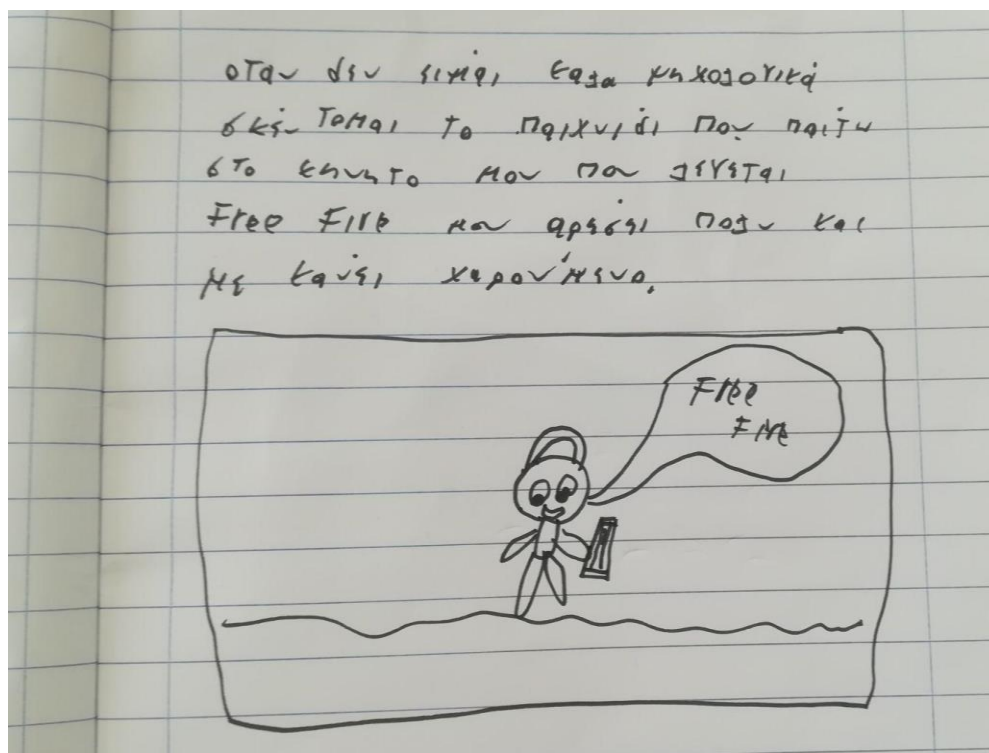 οταν δεν ειμαι καλα ψηχολογικά
σκέυτομαι το παιχνιδι που παιζω
στο κηνητο μου που λεγεται
Free Fire μου αρεσει πολυ και
με κανει χαρουμενο.
Free
Fire